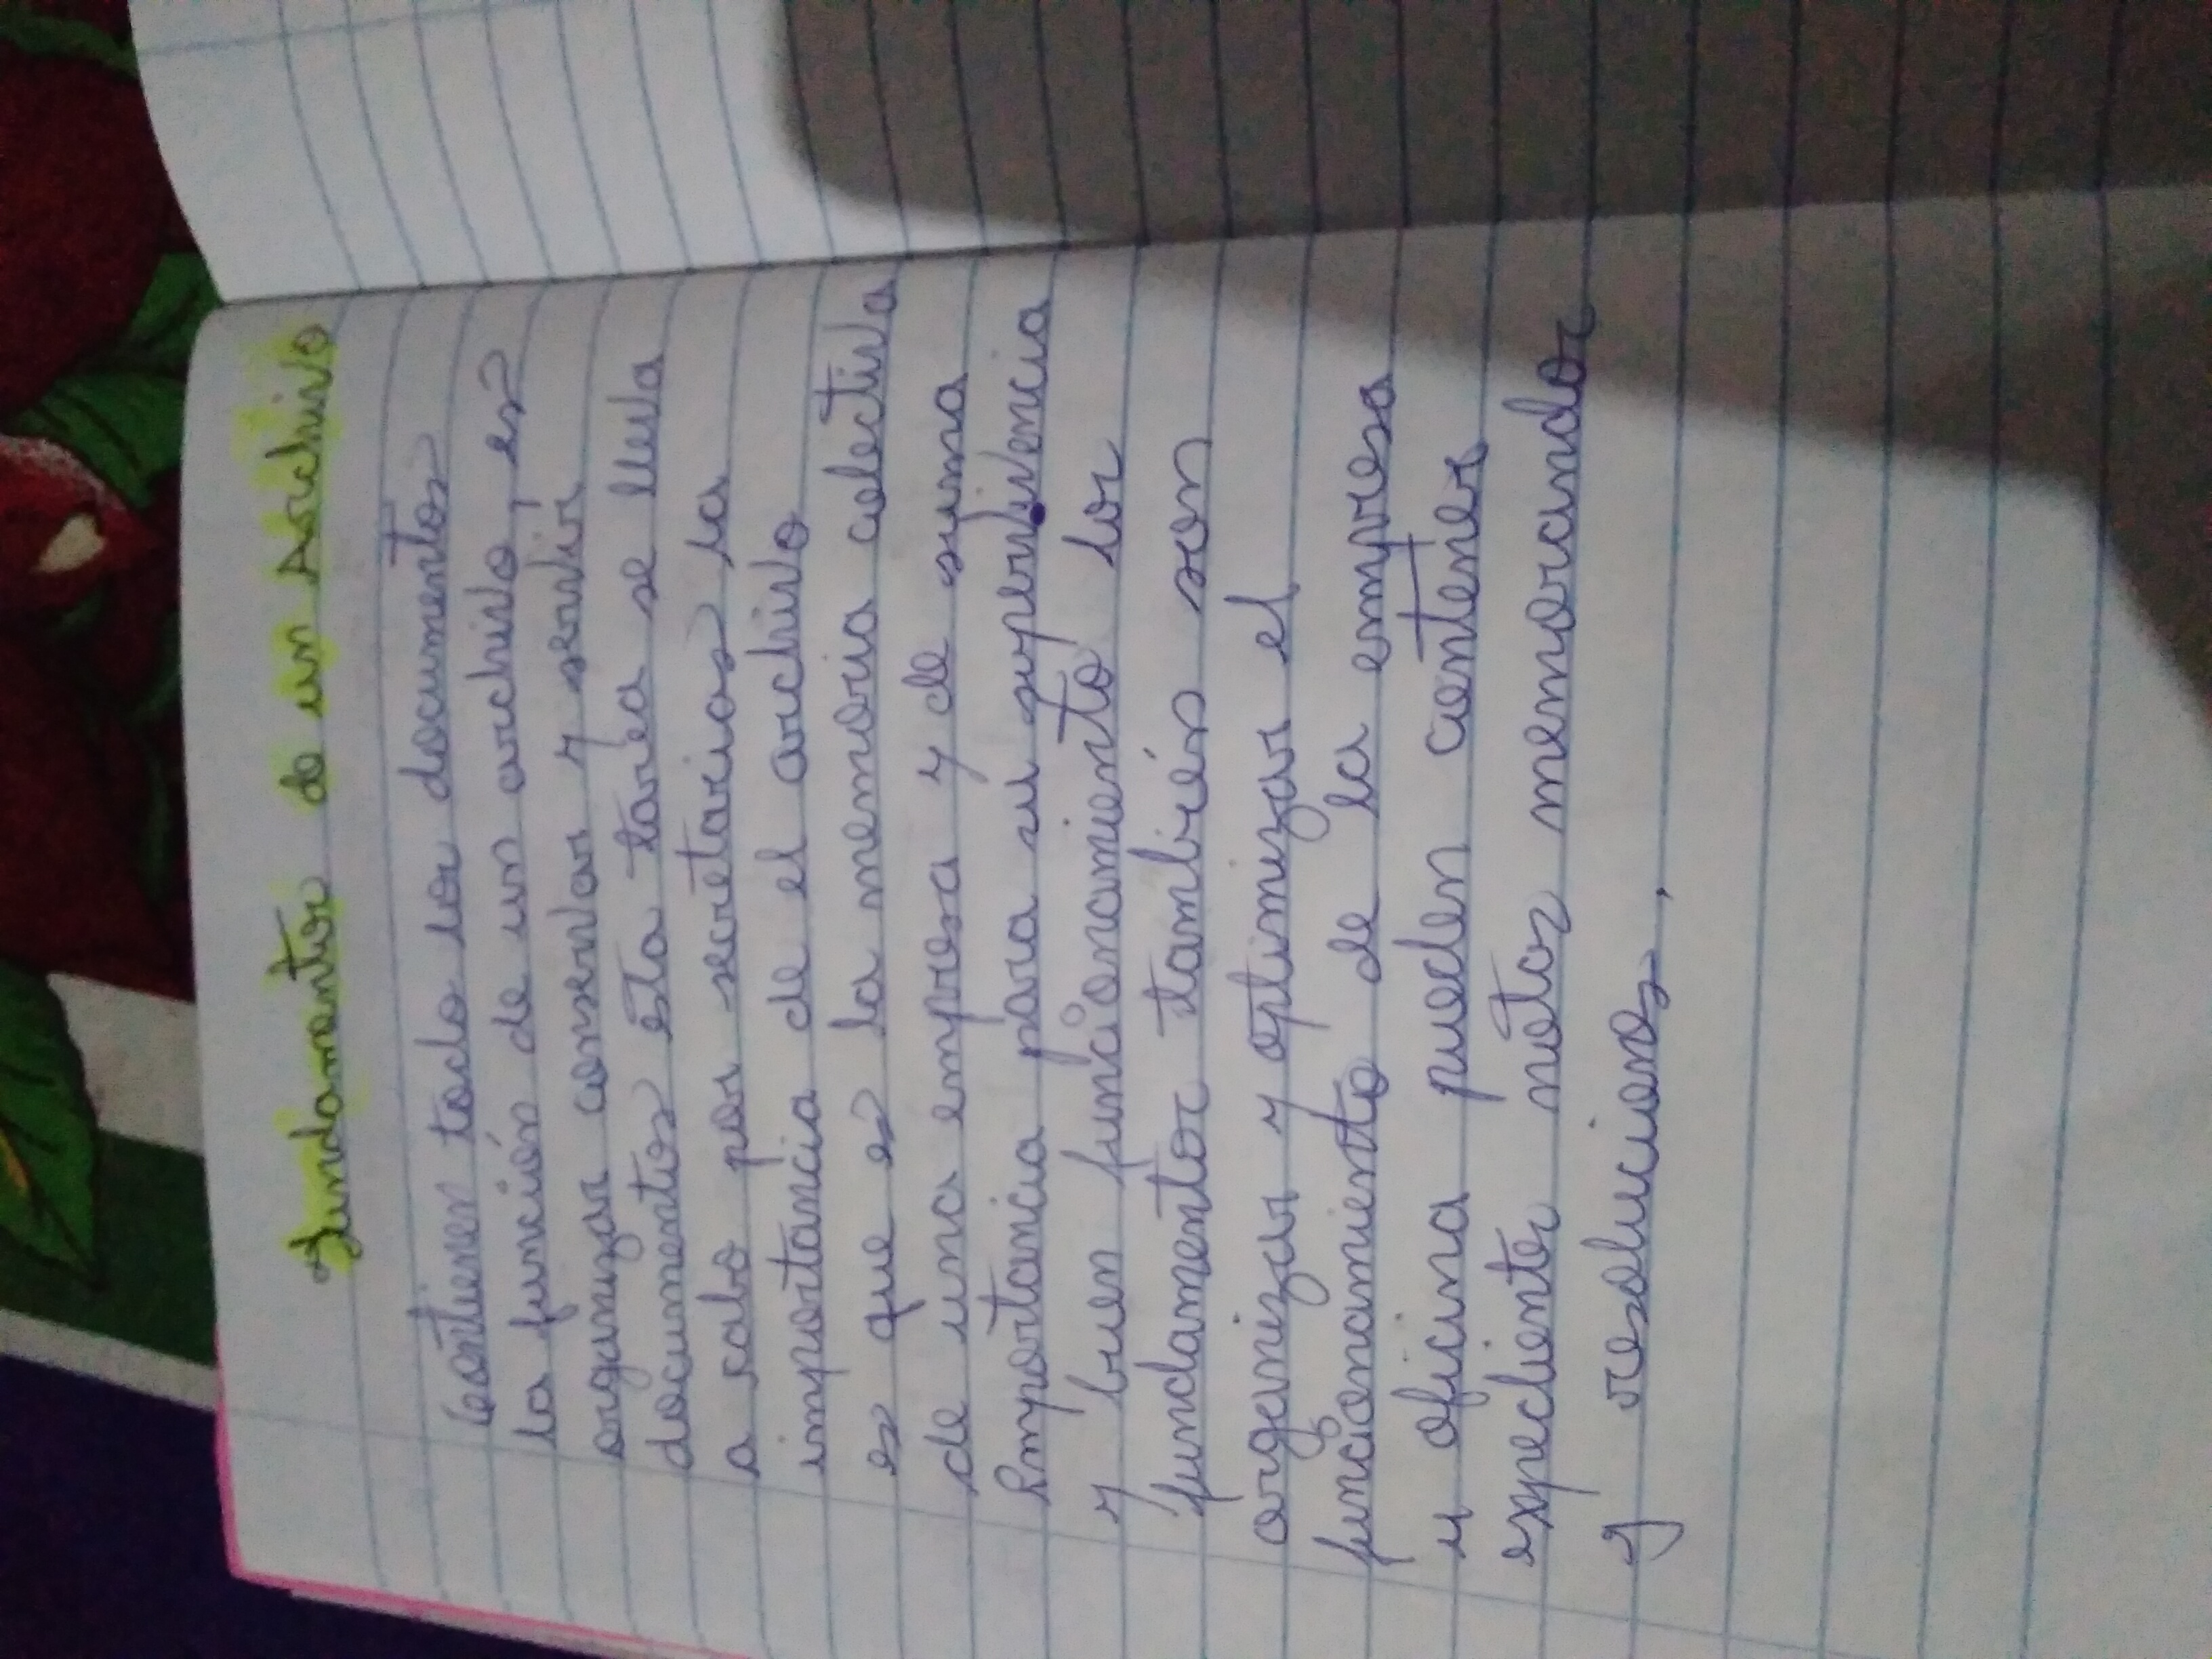 Fundamentos de un Archivo
Contienen todo los documentos
la función de un archivo, es
organizar conservar y servir
documentos esta tarea se lleva
a cabo por secretarias la
importancia de el archivo
es que es la memoria colectiva
de una empresa y de suma
Importancia para su supervivencia
y buen funcionamiento los
fundamentos también son
organizar y optimizar el
funcionamiento de la empresa
y oficina pueden contener
expedientes notas memorandos
y resoluciones.